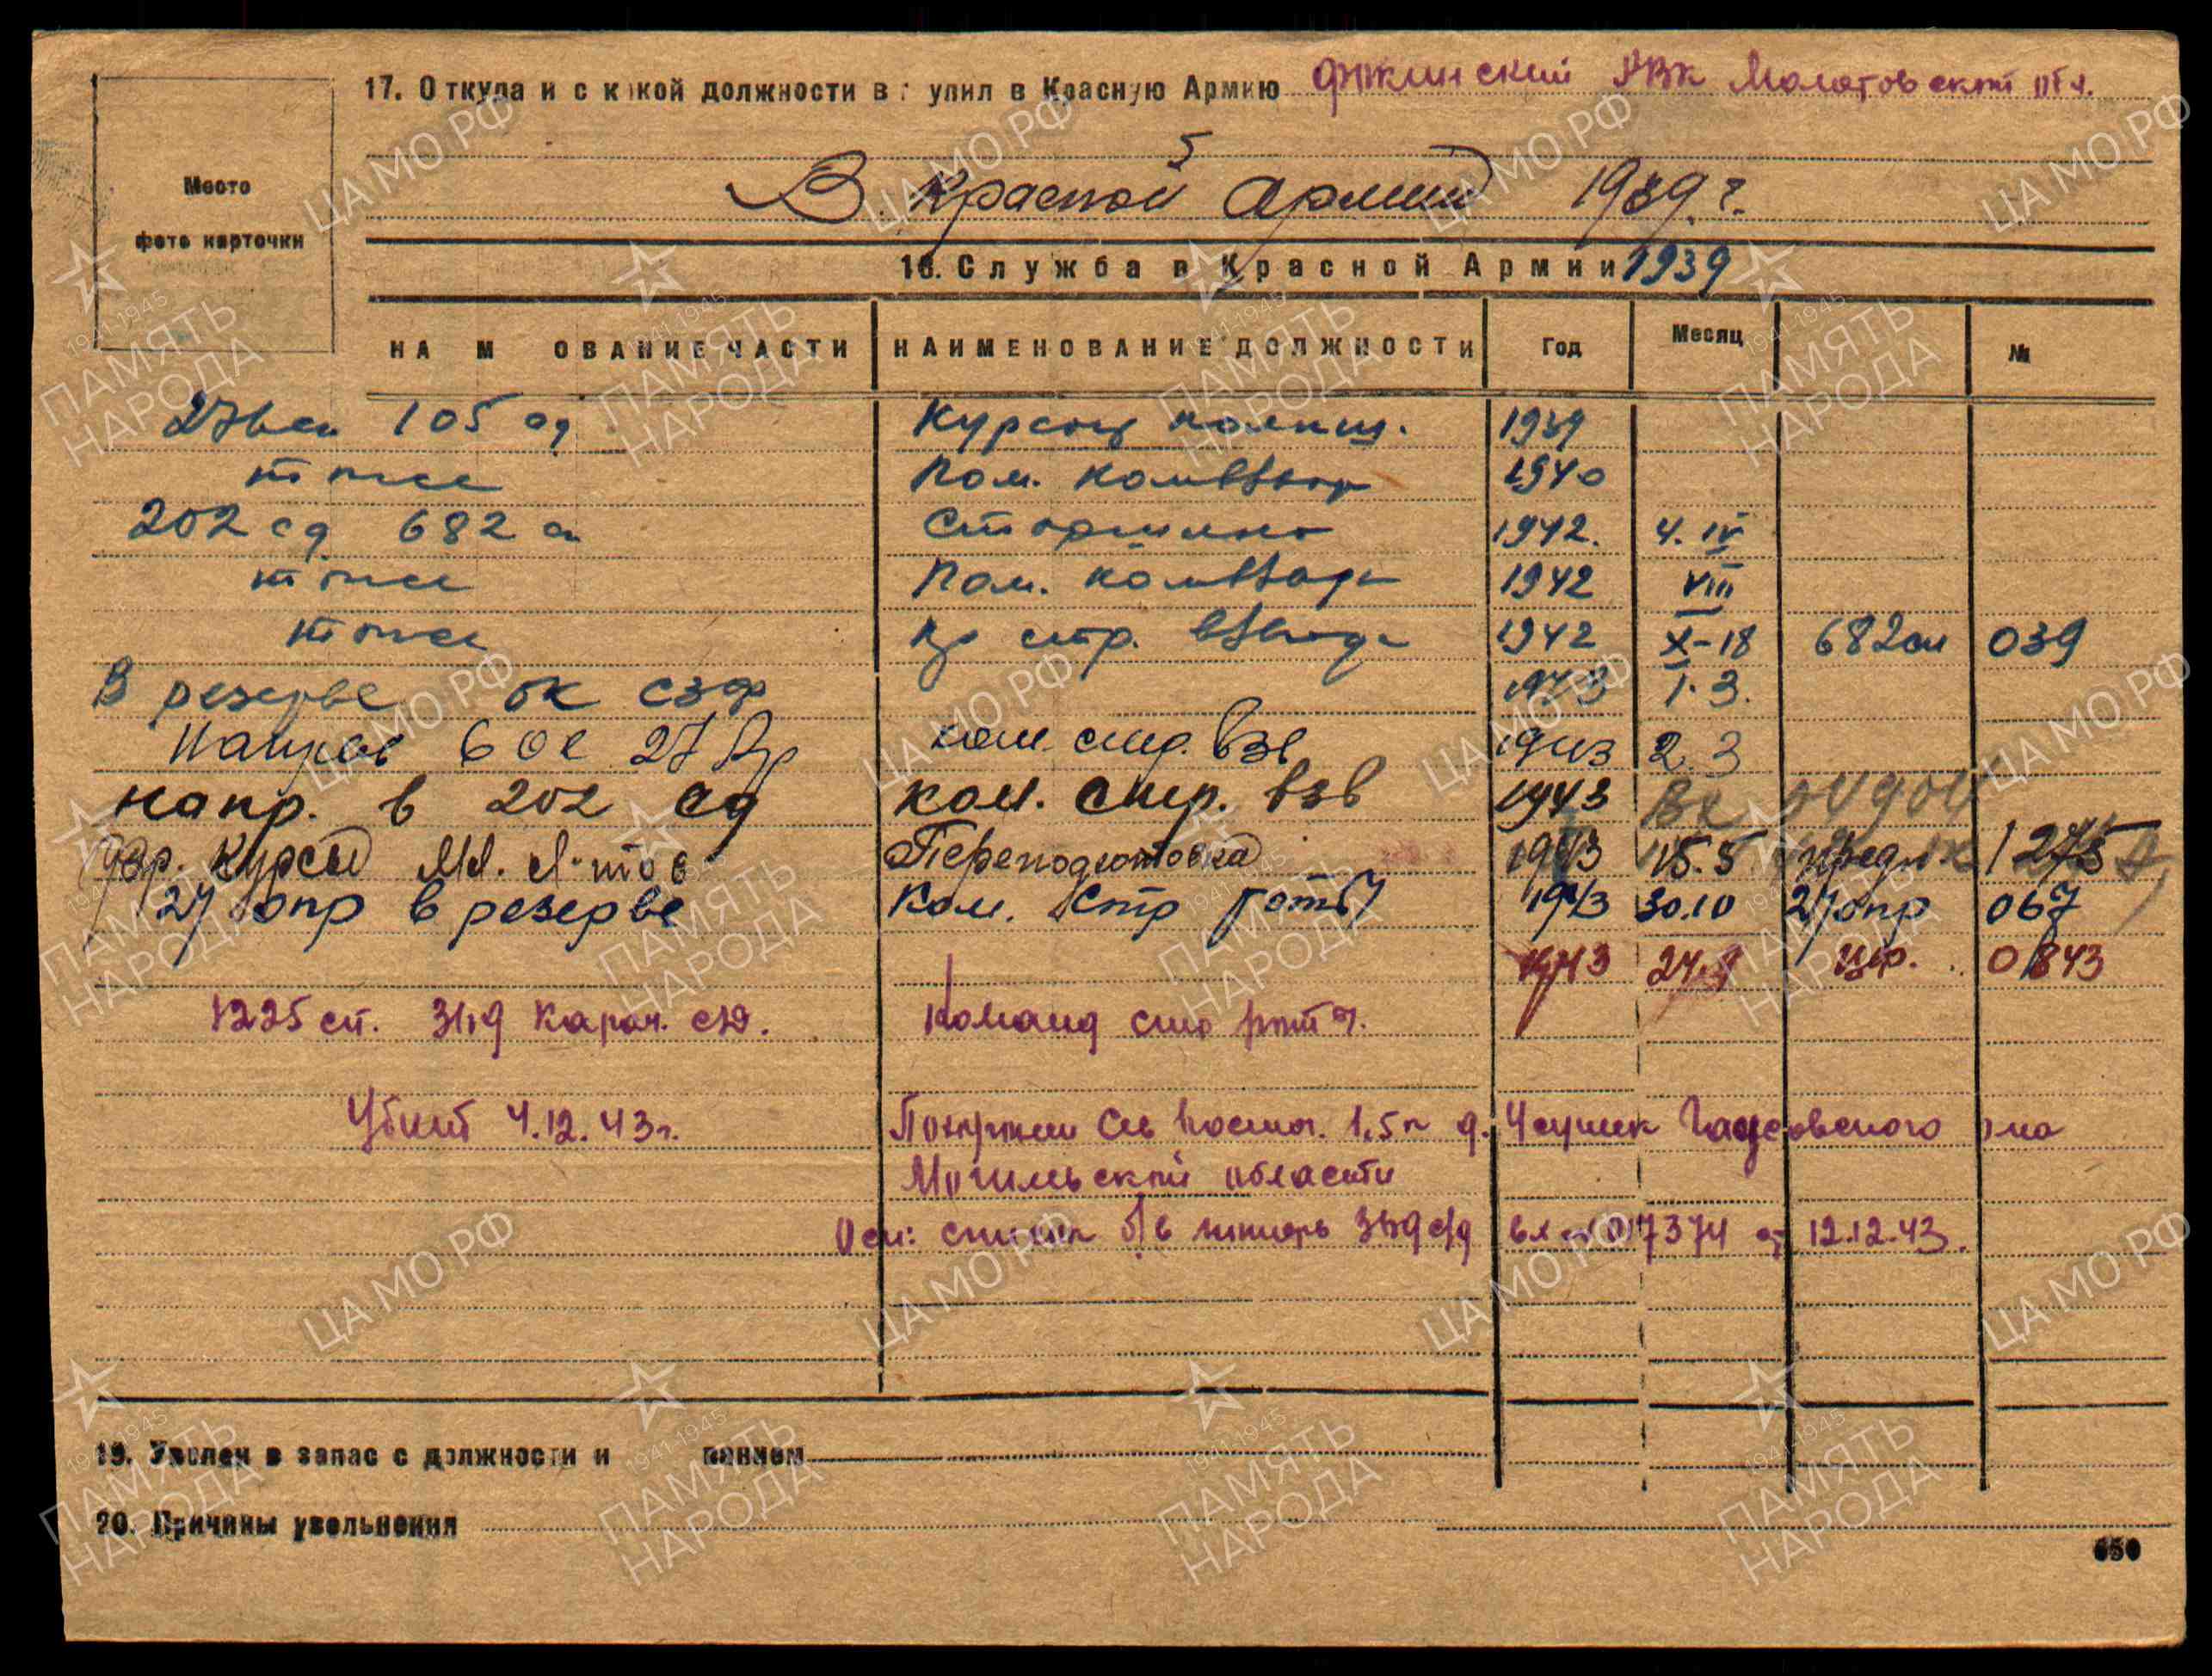 17. Откуда и с какой должности в упил в Красную Армию РВК Молотовской
Место
фото карточки
В Красной Армии 1939 г.
18. Служба в Красной Армии 1939
НА М ОВАНИЕ ЧАСТИ НАИМЕНОВАНИЕ ДОЛЖНОСТИ Год Месяц №
105 сд 1939
то же Пом. комвзвода 1940
202 сд 682 сп Старшина 1942. 4. IV
то же Пом. комвзвода 1942 VIII
то же стр. взвода 1942 X-18 682 сп 039
В резерве ОК СЗФ 1943 1.3.
27 ком. стр. взв 1943 2.3
напр. в 202 сд ком. стр. взв 1943
Курсы Мл. Л-тов Переподготовка 1943 15.5 1275
27 опр в резерве Ком. стр роты 1943 30.10 27 опр 067
1943 0843
1225 сп. 369 Карач. сд. Команд стр роты.
Убит 4.12.43 г. Похоронен Сев Восточ. 1,5 к д.
Могилевской области
Осн: список б/в потерь 369 сд вх 017374 от 12.12.43.
19. Уволен в запас с должности и ванием
20. Причины увольнения
650
ЦА МО РФ
1941-1945
ПАМЯТЬ
НАРОДА